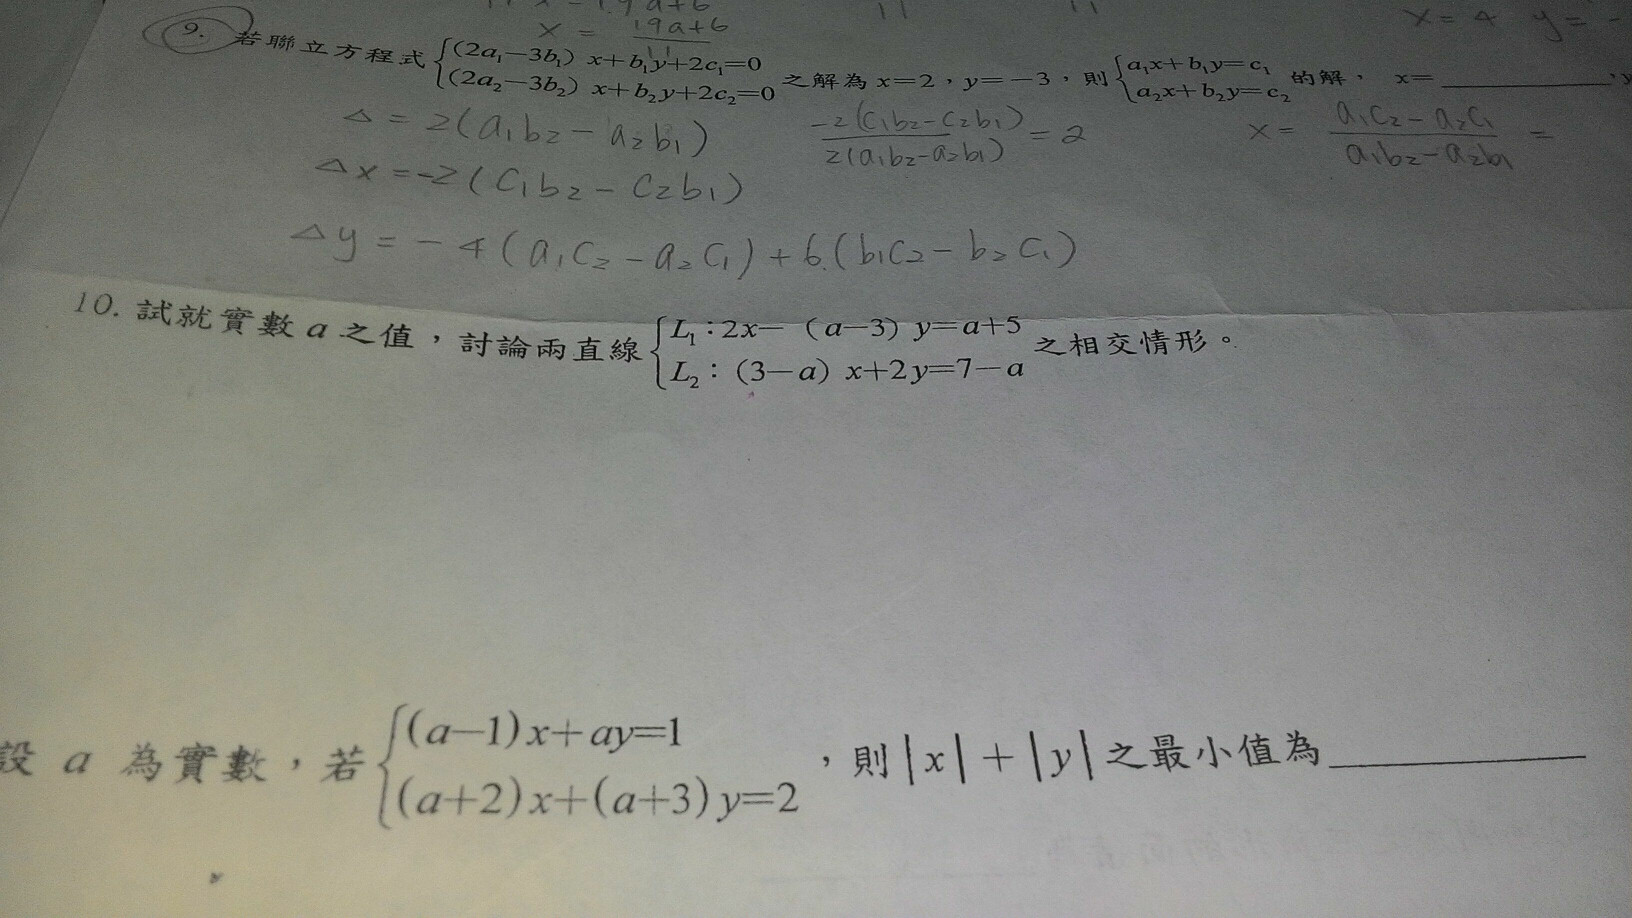 x = 19a+6
11 11
x=4 y=-
9. 若聯立方程式{(2a₁-3b₁) x+b₁y+2c₁=0
(2a₂-3b₂) x+b₂y+2c₂=0 之解為 x=2,y=-3,則{a₁x+b₁y=c₁
a₂x+b₂y=c₂ 的解, x=________,y
△ = 2(a₁b₂-a₂b₁) -2(c₁b₂-c₂b₁)/2(a₁b₂-a₂b₁) = 2 x= a₁c₂-a₂c₁/a₁b₂-a₂b₁ =
△x =-2(c₁b₂-c₂b₁)
△y = -4(a₁c₂-a₂c₁)+6(b₁c₂-b₂c₁)
10. 試就實數 a 之值,討論兩直線{L₁:2x-(a-3) y=a+5
L₂:(3-a) x+2y=7-a 之相交情形。
設 a 為實數,若{(a-1)x+ay=1
(a+2)x+(a+3)y=2 ,則|x|+|y|之最小值為________